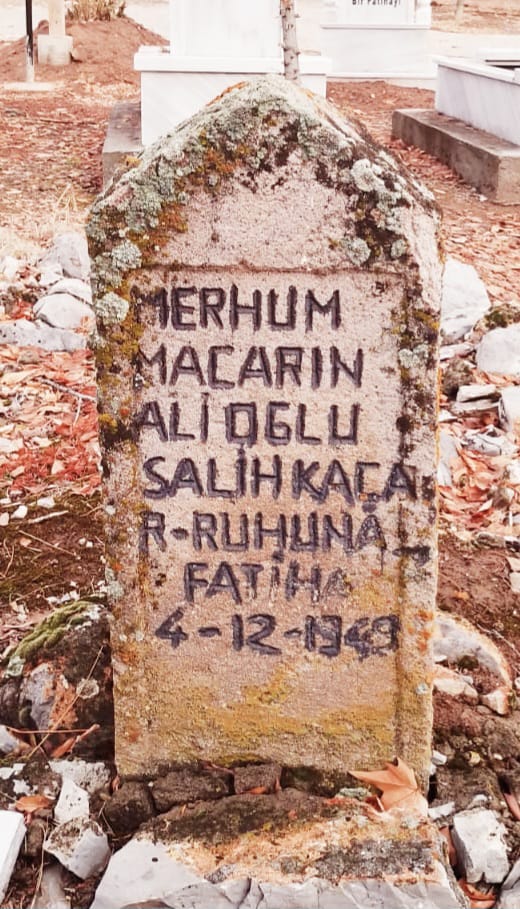 Bir Fatihayı
MERHUM
MACARIN
ALİ OGLU
SALİH KAÇA
R-RUHUNA
FATİHA
4-12-1949